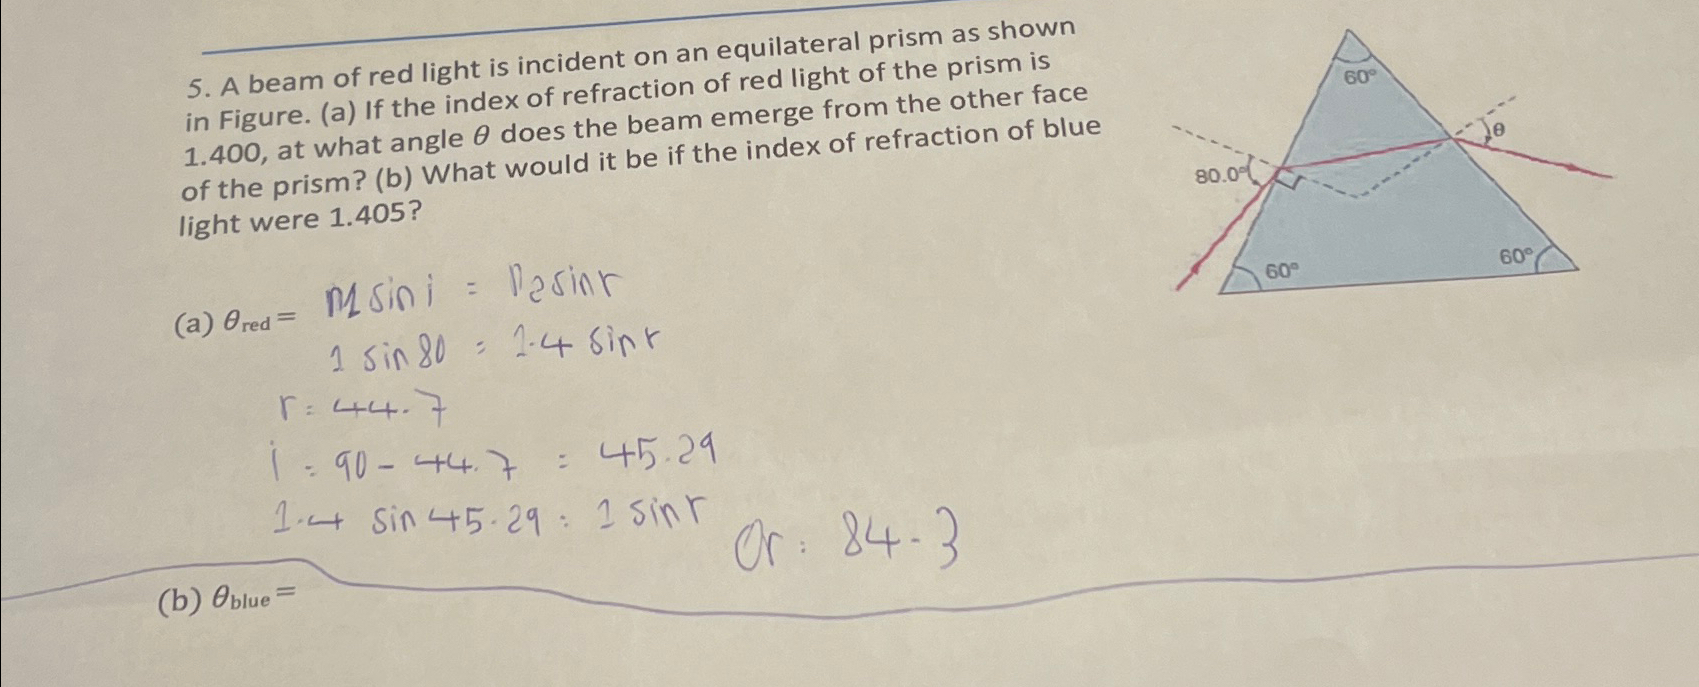 5. A beam of red light is incident on an equilateral prism as shown
in Figure. (a) If the index of refraction of red light of the prism is
1.400, at what angle θ does the beam emerge from the other face
of the prism? (b) What would it be if the index of refraction of blue
light were 1.405?
60°
θ
80.0°
60°
60°
(a) θred =
n1 sin i = n2 sin r
1 sin 80 = 1.4 sin r
r = 44.7
i = 90 - 44.7 = 45.29
1.4 sin 45.29 = 1 sin r
θr = 84.3
(b) θblue =